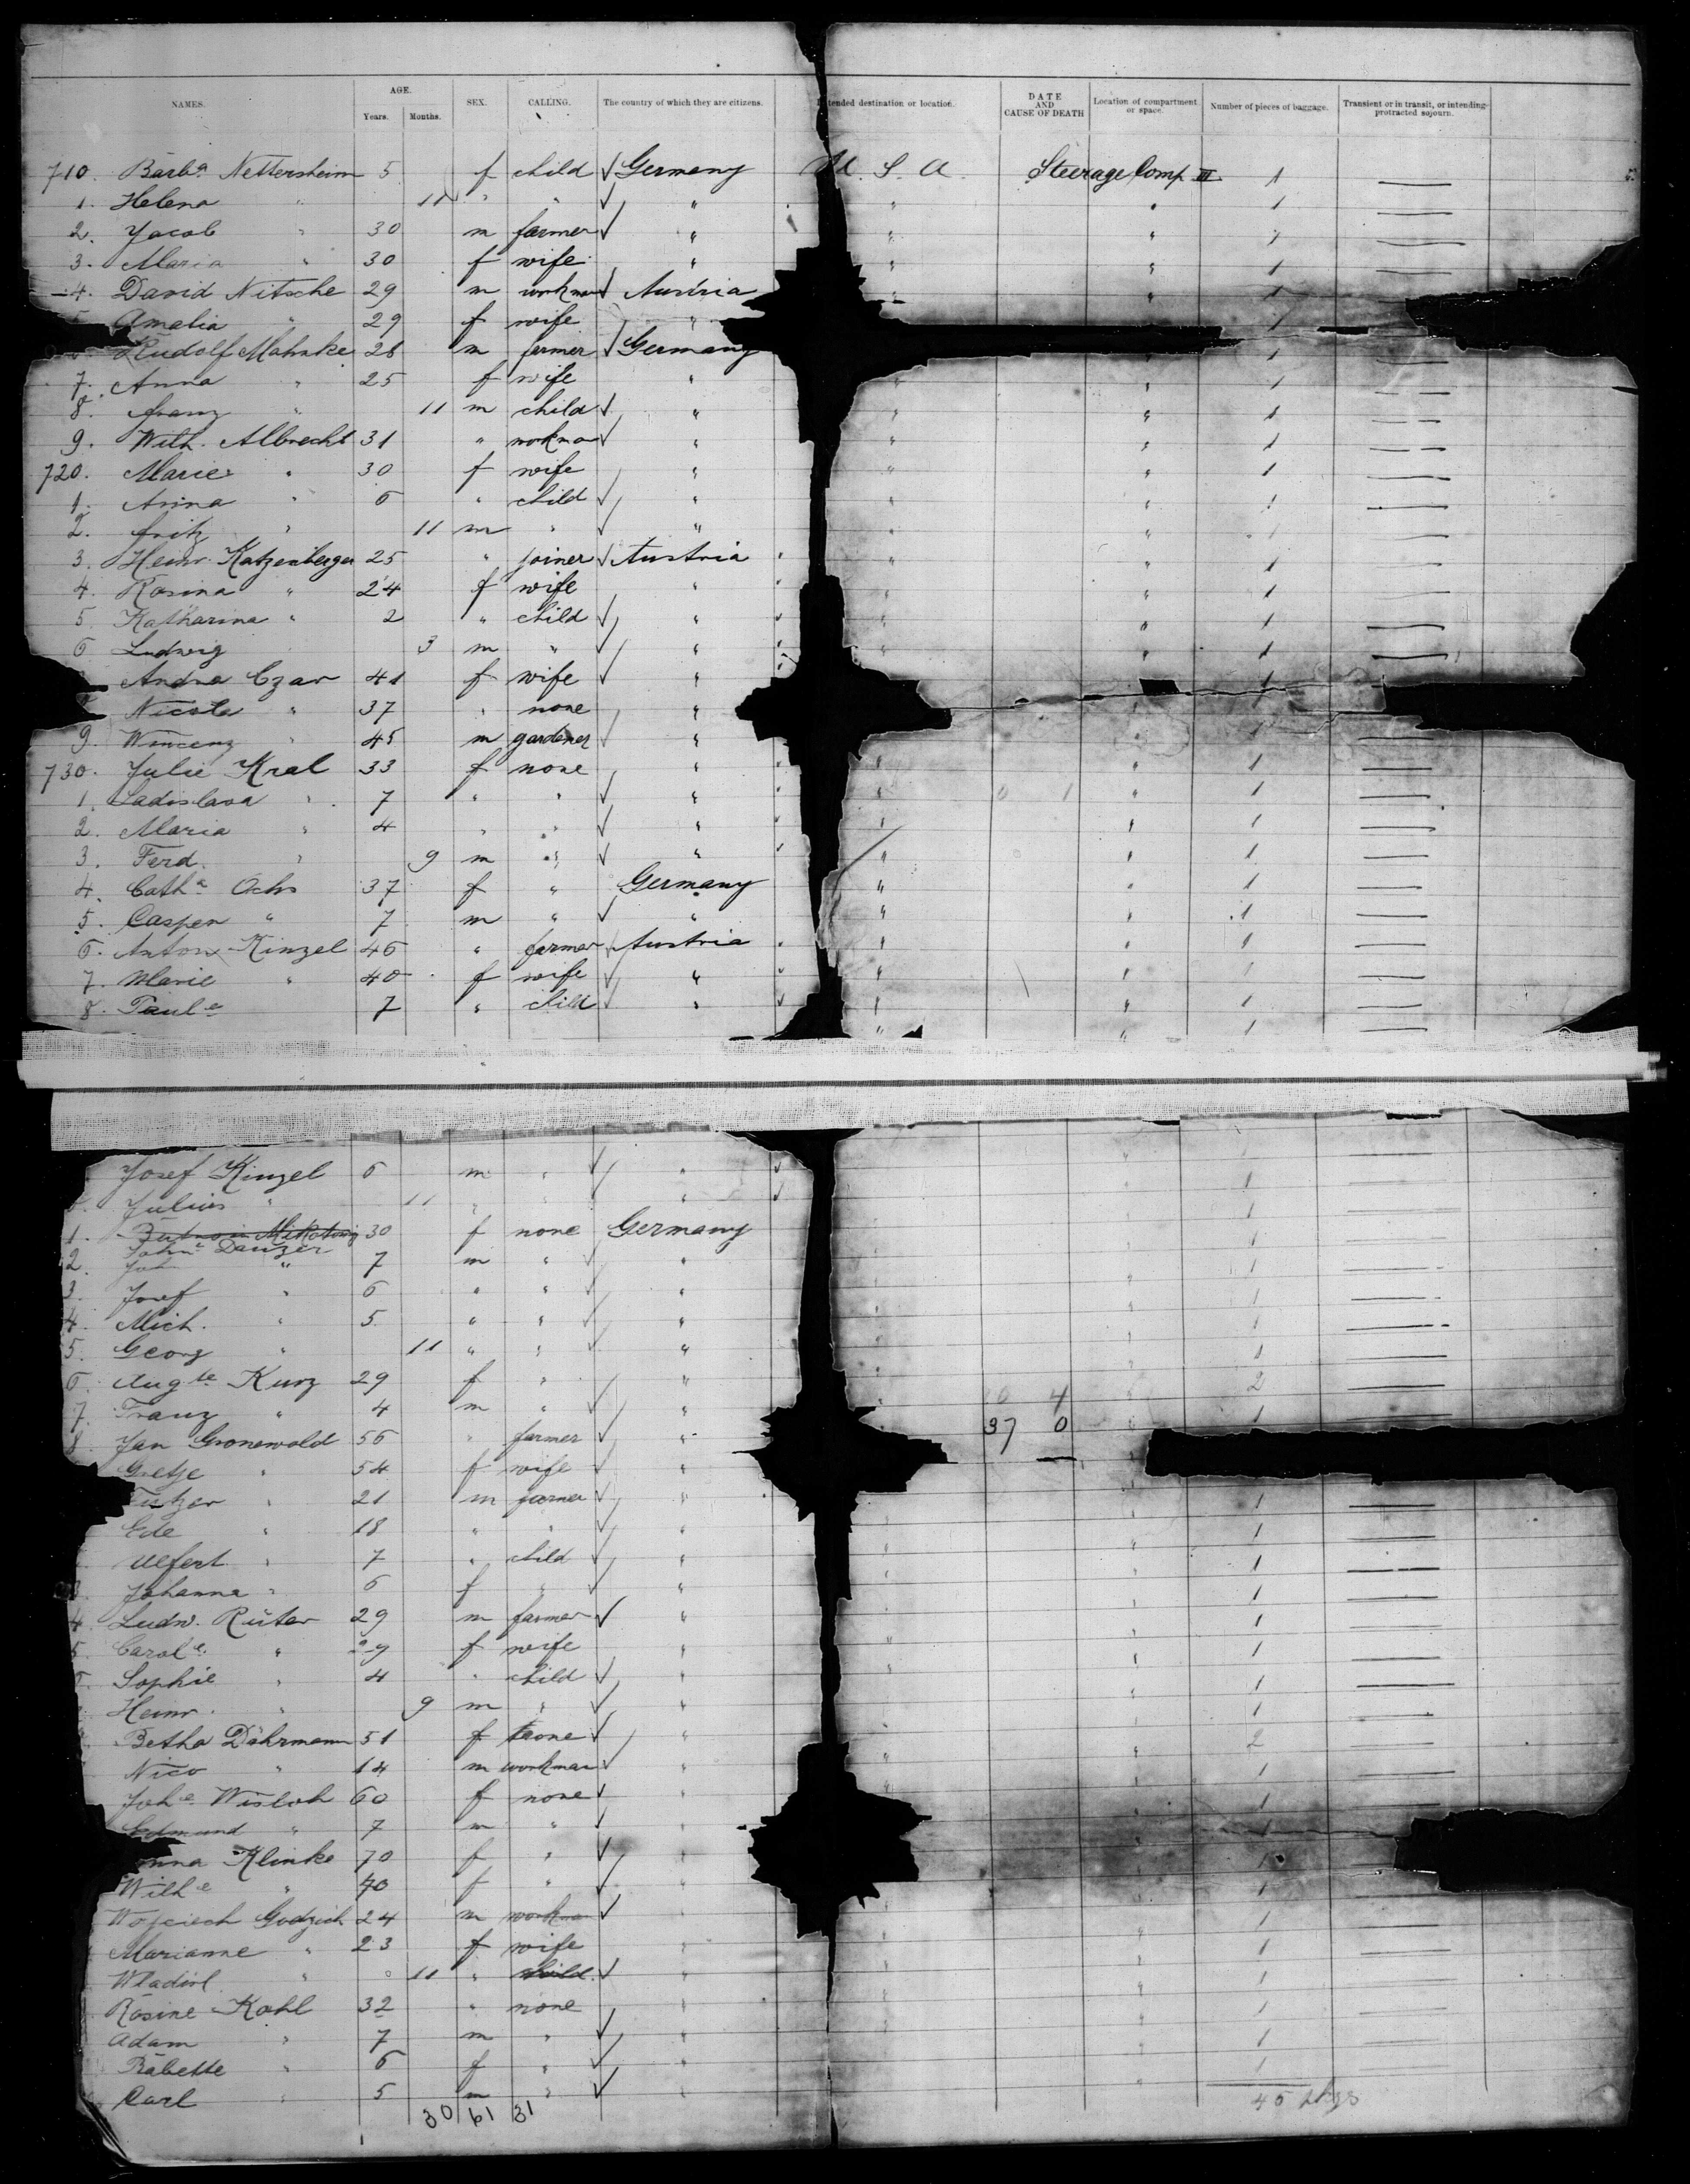 NAMES. AGE. Years. Months. SEX. CALLING. The country of which they are citizens. tended destination or location. DATE AND CAUSE OF DEATH Location of compartment or space. Number of pieces of baggage. Transient or in transit, or intending protracted sojourn.
710. Barbª Nettersheim 5 f child √ Germany U. S. A. Steerage Comp III 1 —
1. Helena " 11 " " √ " " " 1 —
2. Jacob " 30 m farmer √ " " " 1 —
3. Maria " 30 f wife " " " 1 —
4. David Nitsche 29 m workman √ Austria " " 1
Amalia " 29 f wife " 1
Rudolf Mahnke 28 m farmer √ Germany " 1 —
7. Anna " 25 f wife " " " 1 —
8. Franz " 11 m child √ " " " 1 —
9. Wilh. Albrecht 31 " workman √ " " " 1 —
720. Marie " 30 f wife " " " 1 —
1. Anna " 6 " child √ " " " 1 —
2. Fritz " 11 m " √ " " " 1 —
3. Heinr. Katzenberger 25 " joiner √ Austria " " 1 —
4. Rosina " 24 f wife " " " 1 —
5. Katharina " 2 " child √ " " " 1 —
6 Ludwig 3 m " √ " " " 1 —
Andrea Czar 41 f wife √ " 1
Nicola " 37 " none "
9. Wincenz " 45 m gardener √ " 1 —
730. Julie Kral 33 f none " " " 1 —
1. Ladislava " 7 " " √ " " 0 1 " 1 —
2. Maria " 4 " " √ " " " 1 —
3. Ferd. " 9 m " √ " " " 1 —
4. Cathª Ochs 37 f " Germany " " 1 —
5. Casper " 7 m " √ " " " 1 —
6. Anton Kinzel 46 " farmer √ Austria " " 1 —
7. Marie " 40 f wife √ " " " 1 —
8. Paulᵉ 7 " child √ " " " 1 —
" " 1 —
Josef Kinzel 6 m " √ " "
Julius " 11 " " " 1
1. Mikotowig 30 f none Germany 1
Johª Danzer
2. Joh " 7 m " √ " 1 —
3. Josef " 6 " " √ " " 1 —
4. Mich. " 5 " " √ " " 1 —
5. Georg " 11 " " √ " " 1 —
6. Augᵗᵉ Kurz 29 f " " " 2 —
7. Franz " 4 m " √ " 0 4 " 1 —
8. Jan Gronewold 56 " farmer √ " 37 0 "
Gretje " 54 f wife √ "
" 21 m farmer √ " 1 —
Ede " 18 " " √ " " 1 —
Uefert " 7 " child √ " " 1 —
3 Johanna " 6 f " √ " " 1 —
4 Ludw. Rüter 29 m farmer √ " " 1 —
5. Carolᵉ " 29 f wife " " " 1 —
6. Sophie " 4 " child √ " " 1 —
Heinr. " 9 m " √ " 1 —
Betha Dährmann 51 f none √ " " 2 —
Nico " 14 m workman √ " " 1 —
Johᵉ Wisloh 60 f none √ " " 1 —
Edmund " 7 m " √ " " 1
nna Klinke 70 f " √ " 1
Wilhᵉ " 40 f " √ " 1
Wojciech Godzich 24 m workman √ " " 1 —
Marianne " 23 f wife " " 1 —
Wladisl " 11 " child √ " " 1 —
Rosine Kohl 32 " none " " 1 —
Adam " 7 m " √ " " 1 —
Babette " 6 f " √ " " 1 —
Carl " 5 m " √ " "
30 61 31